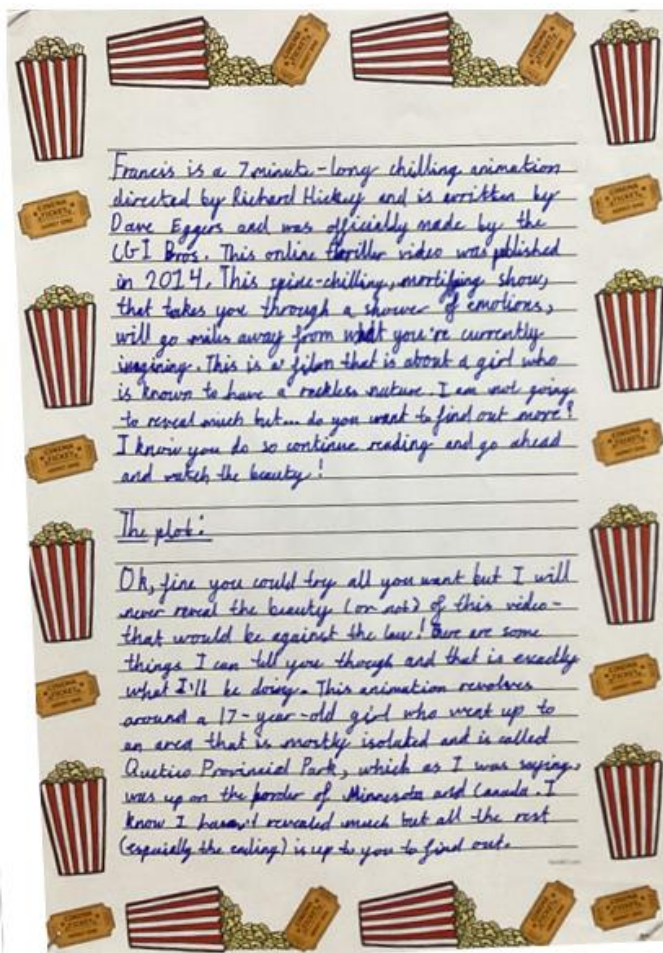 Francis is a 7 minute-long chilling animation
directed by Richard Hickey and is written by
Dave Eggers and was officially made by the
CGI Bros. This online thriller video was published
in 2014. This spine-chilling, mortifying show,
that takes you through a shower of emotions,
will go miles away from what you're currently
imagining. This is a film that is about a girl who
is known to have a reckless nature. I am not going
to reveal much but... do you want to find out more?
I know you do so continue reading and go ahead
and watch the beauty!
The plot:
Ok, fine you could try all you want but I will
never reveal the beauty (or not) of this video-
that would be against the law! are some
things I can tell you though and that is exactly
what I'll be doing. This animation revolves
around a 17-year-old girl who went up to
an area that is mostly isolated and is called
Quetico Provincial Park, which as I was saying,
was up on the border of Minnesota and Canada. I
know I haven't revealed much but all the rest
(especially the ending) is up to you to find out.
CINEMA
TICKET
CINEMA
TICKET
CINEMA
TICKET
CINEMA
TICKET
CINEMA
TICKET
CINEMA
TICKET
CINEMA
TICKET
CINEMA
TICKET
CINEMA
TICKET
CINEMA
TICKET
CINEMA
TICKET
CINEMA
TICKET